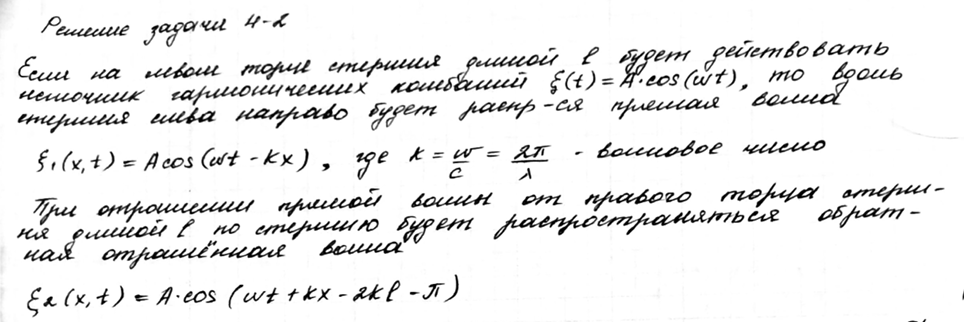 Решение задачи 4-2
Если на левом торце стержня длиной l будет действовать
источник гармонических колебаний ξ(t) = A·cos(wt), то вдоль
стержня слева направо будет распр-ся прямая волна
ξ₁(x,t) = A cos(wt - kx), где k = w/c = 2π/λ - волновое число
При отражении прямой волны от правого торца стерж-
ня длиной l по стержню будет распространяться обрат-
ная отражённая волна
ξ₂(x,t) = A·cos (wt + kx - 2kl - π)